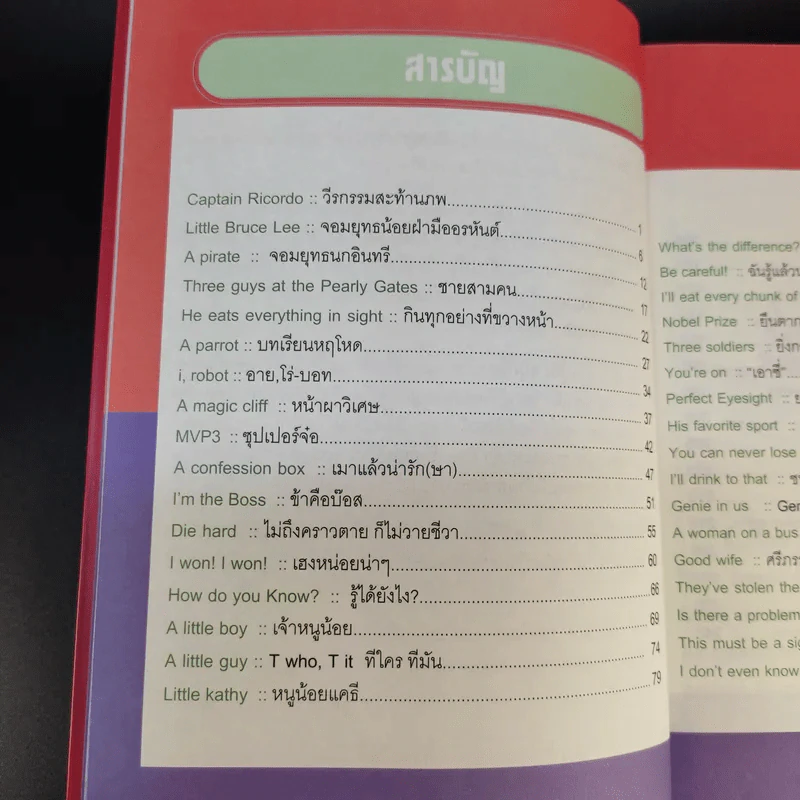 สารบัญ
Captain Ricordo :: วีรกรรมสะท้านภพ...1
Little Bruce Lee :: จอมยุทธน้อยฝ่ามืออรหันต์...6
A pirate :: จอมยุทธนกอินทรี...12
Three guys at the Pearly Gates :: ชายสามคน...17
He eats everything in sight :: กินทุกอย่างที่ขวางหน้า...22
A parrot :: บทเรียนหฤโหด...27
i, robot :: อาย,โร่-บอท...34
A magic cliff :: หน้าผาวิเศษ...37
MVP3 :: ซุปเปอร์จ๋อ...42
A confession box :: เมาแล้วน่ารัก(ษา)...47
I'm the Boss :: ข้าคือบ๊อส...51
Die hard :: ไม่ถึงคราวตาย ก็ไม่วายชีวา...55
I won! I won! :: เฮงหน่อยน่าๆ...60
How do you Know? :: รู้ได้ยังไง?...66
A little boy :: เจ้าหนูน้อย...69
A little guy :: T who, T it ทีใคร ทีมัน...74
Little kathy :: หนูน้อยแคธี...79
What's the difference?
Be careful! :: ฉันรู้แล้ว
I'll eat every chunk of
Nobel Prize :: ยืนตาก
Three soldiers ::
You're on :: "เอาซี่"...
Perfect Eyesight ::
His favorite sport ::
You can never lose
I'll drink to that ::
Genie in us ::
A woman on a bus
Good wife :: ศรีภรร
They've stolen the
Is there a problem
This must be a
I don't even know